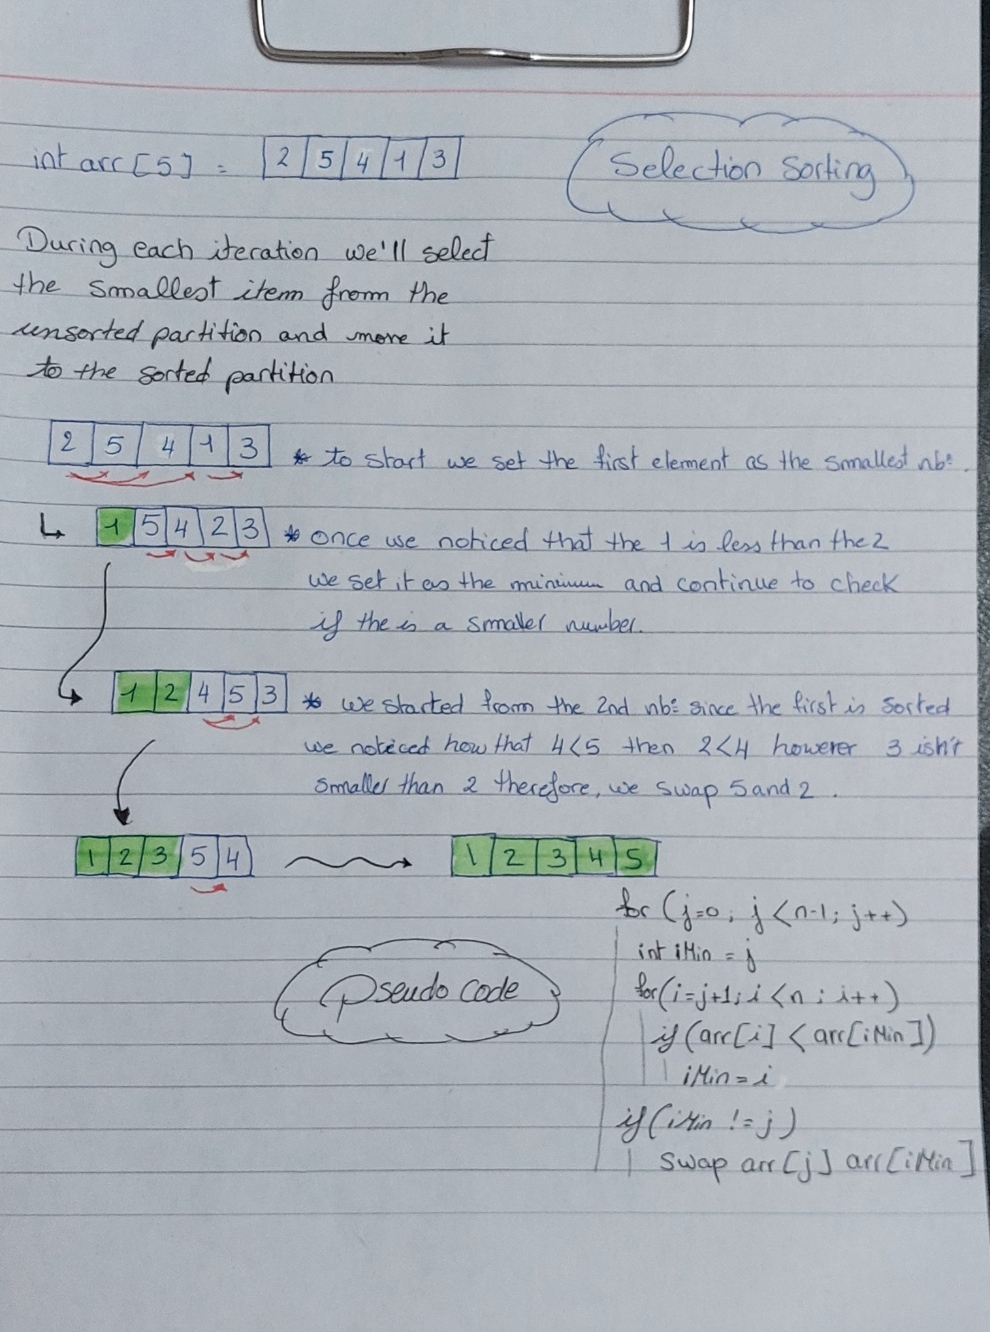 int arr [5] = 2 5 4 1 3
Selection Sorting
During each iteration we'll select
the smallest item from the
unsorted partition and move it
to the sorted partition
2 5 4 1 3 * to start we set the first element as the smallest nb:.
1 5 4 2 3 * once we noticed that the 1 is less than the 2
we set it as the minimum and continue to check
if the is a smaller number.
1 2 4 5 3 * we started from the 2nd nb: since the first is sorted
we noticed how that 4<5 then 2<4 however 3 isn't
smaller than 2 therefore, we swap 5 and 2.
1 2 3 5 4 1 2 3 4 5
for (j=0; j<n-1; j++)
int iMin = j
Pseudo code
for(i=j+1; i<n; i++)
if (arr[i] < arr[iMin])
iMin = i
if (iMin != j)
swap arr[j] arr[iMin]